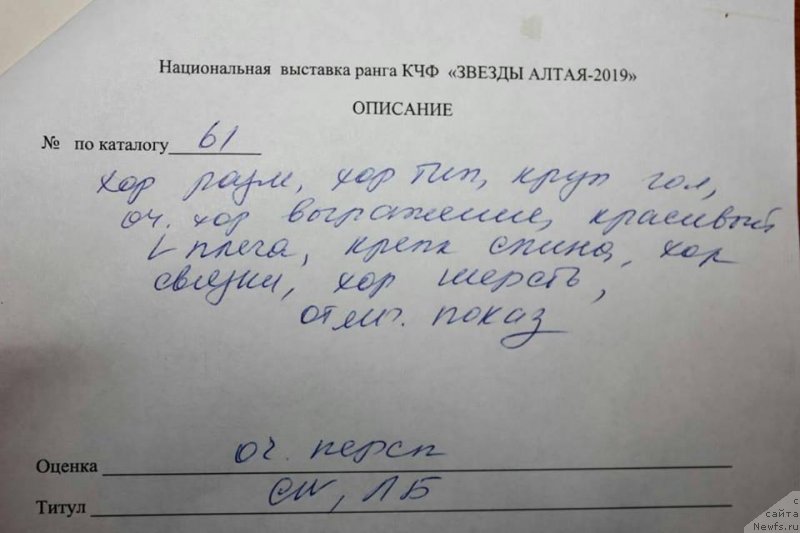 Национальная выставка ранга КЧФ «ЗВЕЗДЫ АЛТАЯ-2019»
ОПИСАНИЕ
№ по каталогу 61
хор разм, хор тип, круп гол,
оч. хор выражение, красивый
∟ плеча, крепк спина, хор
связки, хор шерсть,
отлич. показ
Оценка оч. персп
Титул CW, ЛБ
с
сайта
Newfs.ru